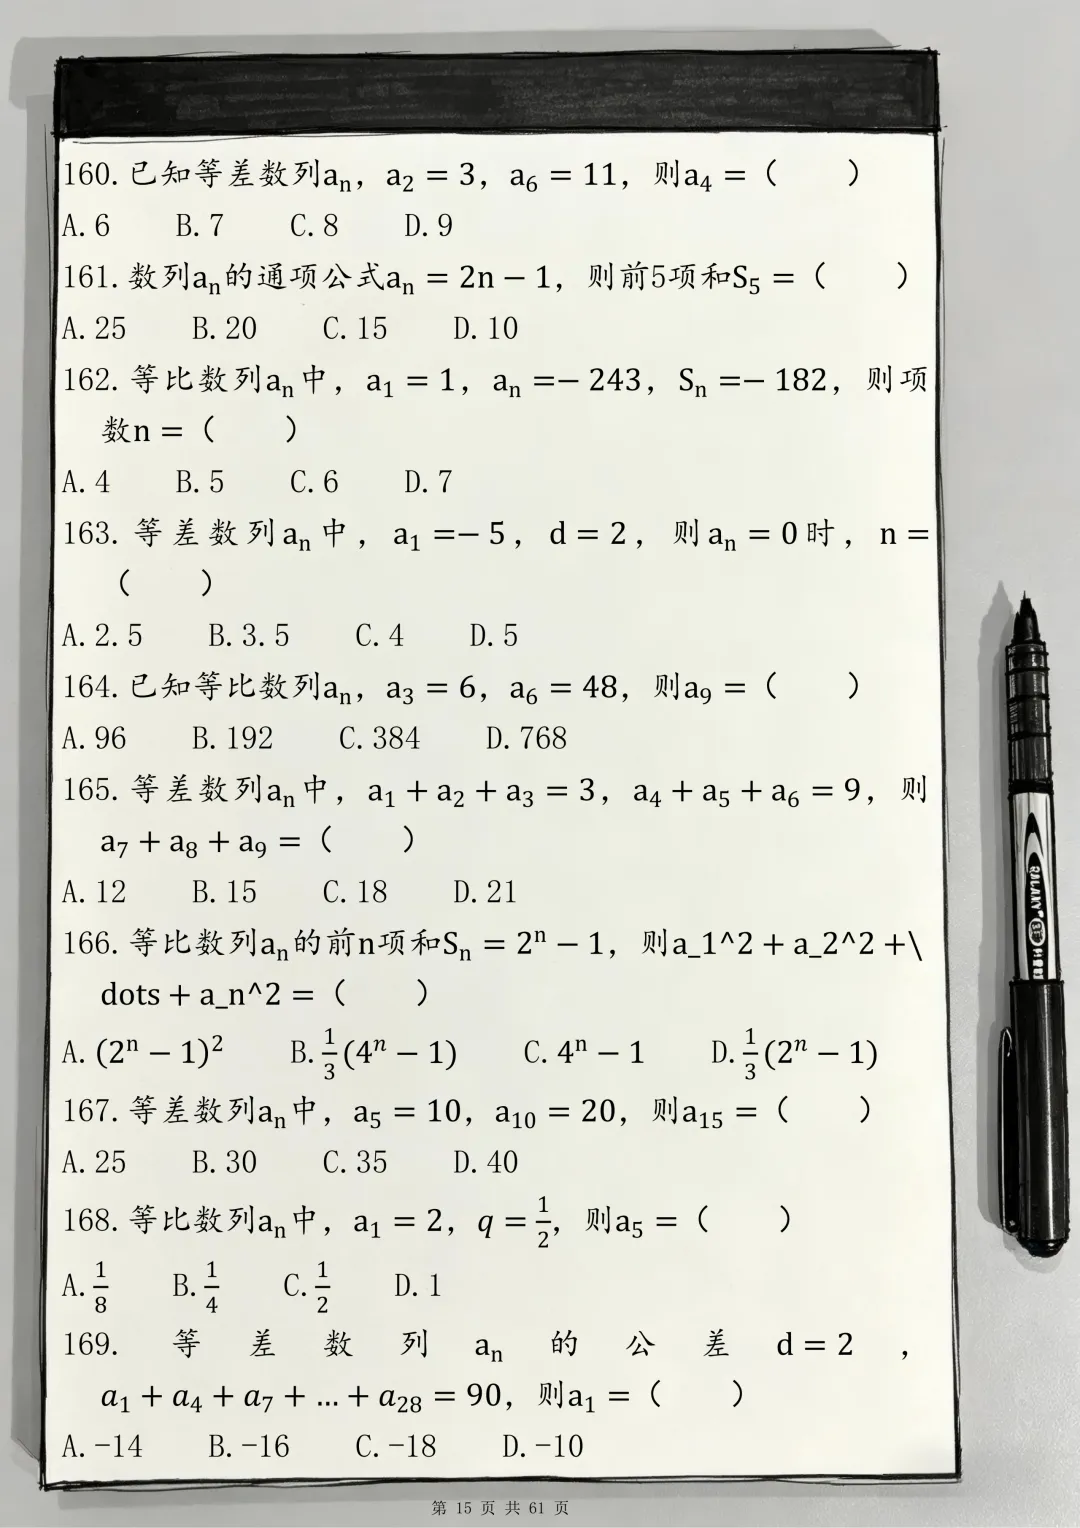 160. 已知等差数列aₙ，a₂ = 3，a₆ = 11，则a₄ =（　　）
A. 6　B. 7　C. 8　D. 9
161. 数列aₙ的通项公式aₙ = 2n − 1，则前5项和S₅ =（　　）
A. 25　B. 20　C. 15　D. 10
162. 等比数列aₙ中，a₁ = 1，aₙ =− 243，Sₙ =− 182，则项
数n =（　　）
A. 4　B. 5　C. 6　D. 7
163. 等差数列aₙ中，a₁ =− 5，d = 2，则aₙ = 0时，n =
（　　）
A. 2.5　B. 3.5　C. 4　D. 5
164. 已知等比数列aₙ，a₃ = 6，a₆ = 48，则a₉ =（　　）
A. 96　B. 192　C. 384　D. 768
165. 等差数列aₙ中，a₁ + a₂ + a₃ = 3，a₄ + a₅ + a₆ = 9，则
a₇ + a₈ + a₉ =（　　）
A. 12　B. 15　C. 18　D. 21
166. 等比数列aₙ的前n项和Sₙ = 2ⁿ − 1，则a_1^2 + a_2^2 +\
dots + a_n^2 =（　　）
A. (2ⁿ − 1)²　B. 1/3(4ⁿ − 1)　C. 4ⁿ − 1　D. 1/3(2ⁿ − 1)
167. 等差数列aₙ中，a₅ = 10，a₁₀ = 20，则a₁₅ =（　　）
A. 25　B. 30　C. 35　D. 40
168. 等比数列aₙ中，a₁ = 2，q = 1/2，则a₅ =（　　）
A. 1/8　B. 1/4　C. 1/2　D. 1
169. 等差数列aₙ的公差d = 2，
a₁ + a₄ + a₇ + … + a₂₈ = 90，则a₁ =（　　）
A. -14　B. -16　C. -18　D. -10
第 15 页 共 61 页